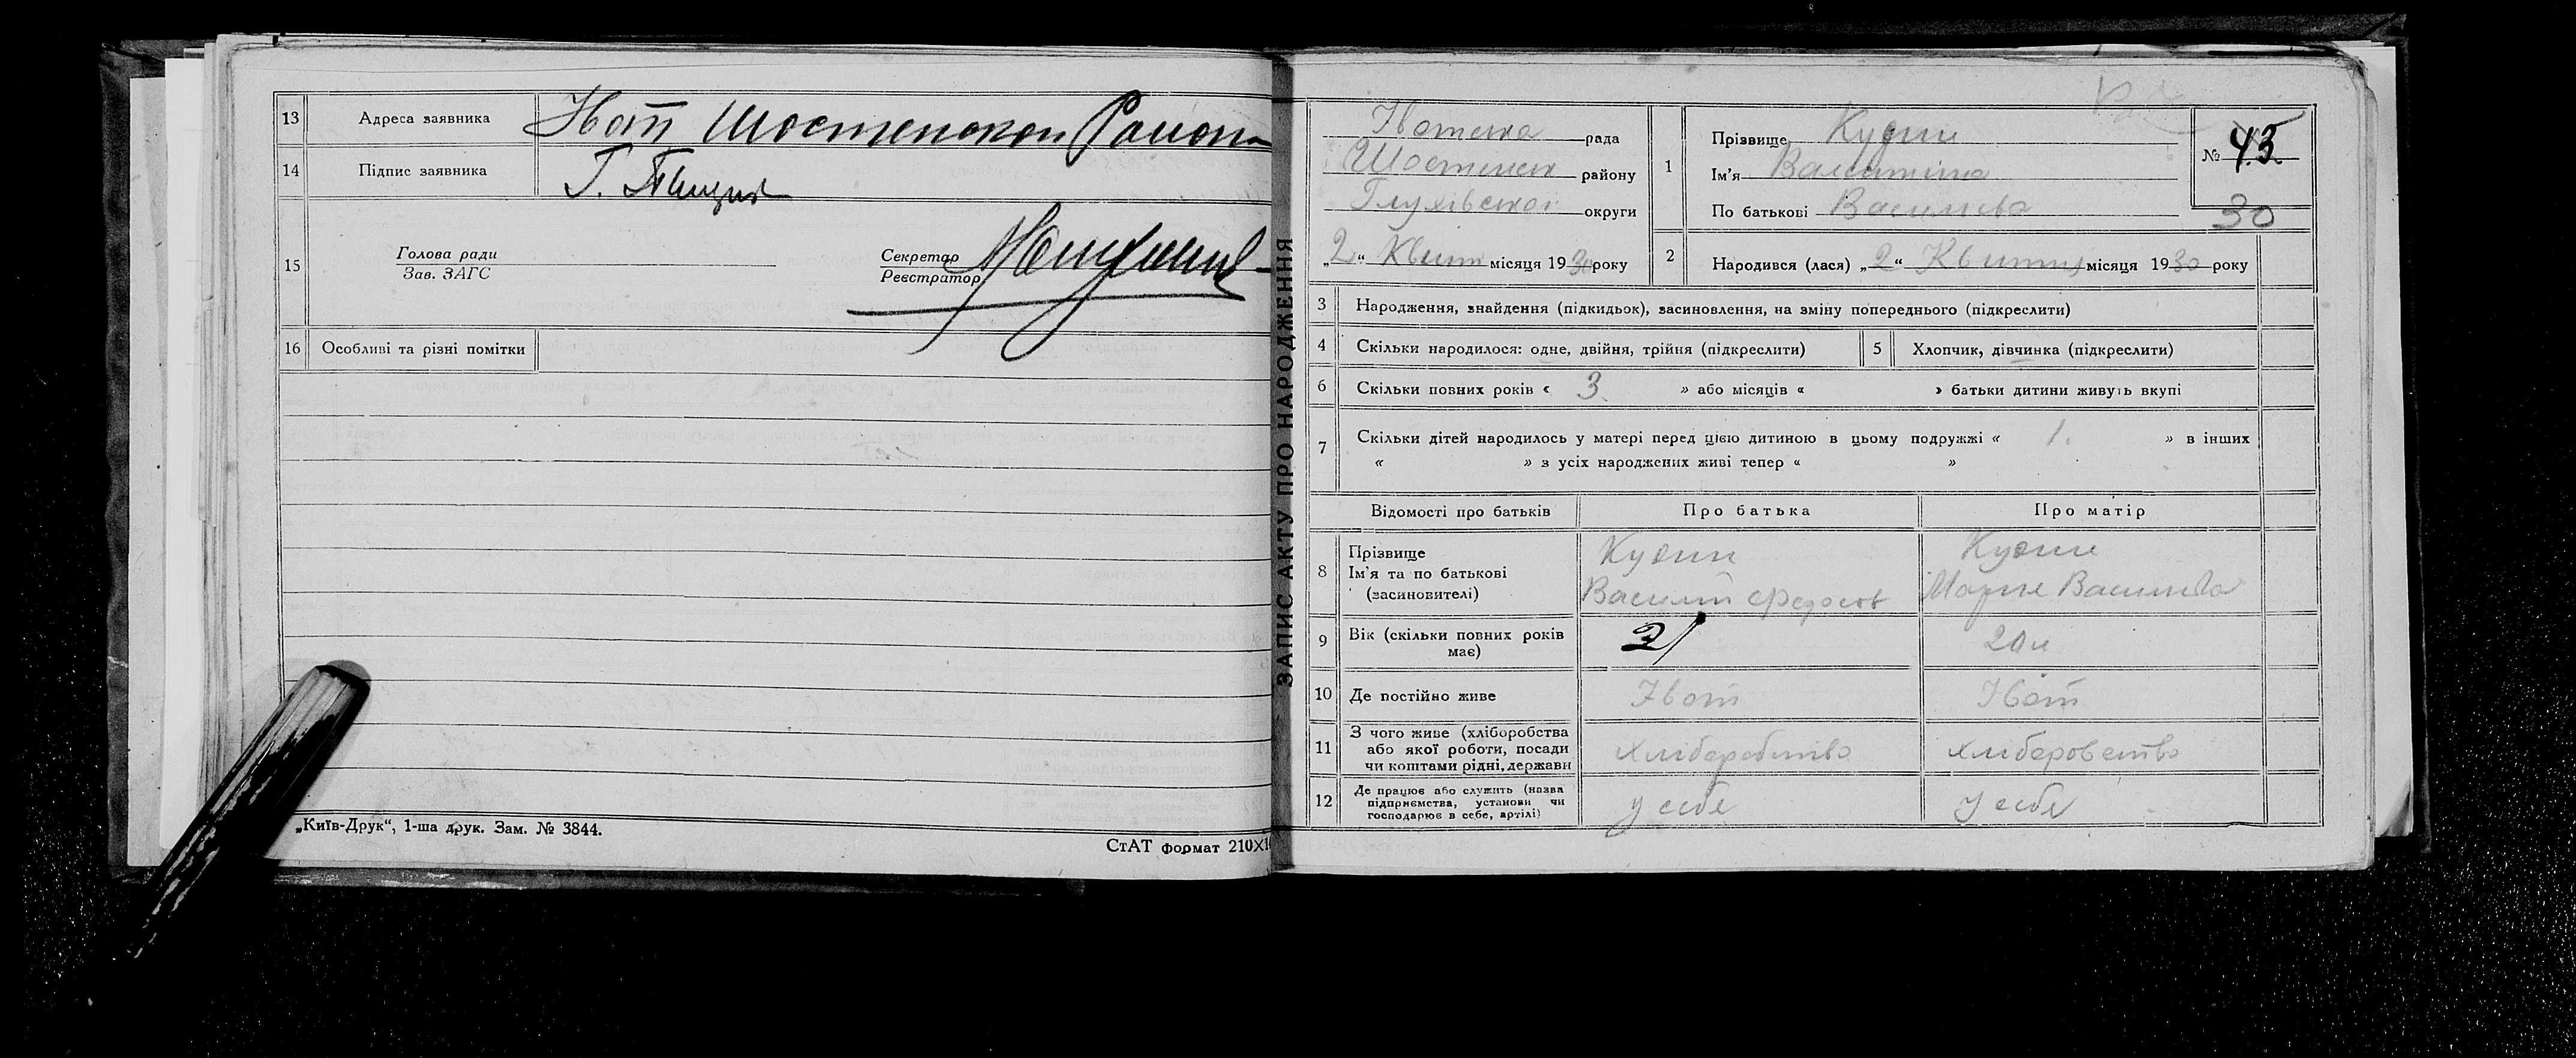 13 Адреса заявника Ивот Шостенскои Района
14 Підпис заявника Г.
15 Голова ради
Зав. ЗАГС
Секретар
Реєстратор
16 Особливі та різні помітки
„Київ-Друк“, 1-ша друк. Зам. № 3844.
СтАТ формат 210X1
ЗАПИС АКТУ ПРО НАРОДЖЕННЯ
Івотська рада
Шостенськ району
Глухівської округи
„2“ Квітн місяця 1930 року
1 Прізвище
Ім'я Валентина
По батькові Васильева
№ 43
30
2 Народився (лася) „2“ Квітня місяця 1930 року
3 Народження, знайдення (підкидьок), засиновлення, на зміну попереднього (підкреслити)
4 Скільки народилося: одне, двійня, трійня (підкреслити)
5 Хлопчик, дівчинка (підкреслити)
6 Скільки повних років « 3 » або місяців « » батьки дитини живуть вкупі
7 Скільки дітей народилось у матері перед цією дитиною в цьому подружжі « 1. » в інших
« » з усіх народжених живі тепер « »
Відомості про батьків Про батька Про матір
8 Прізвище
Ім'я та по батькові
(засиновителі)
Василий Федосов
Мария Васильева
9 Вік (скільки повних років
має)
21
20 л
10 Де постійно живе Івот Івот
11 З чого живе (хліборобства
або якої роботи, посади
чи коштами рідні, держави
хлиборобство
хлиборобство
12 Де працює або служить (назва
підприємства, установи чи
господарює в себе, артілі)
у себе
у себе